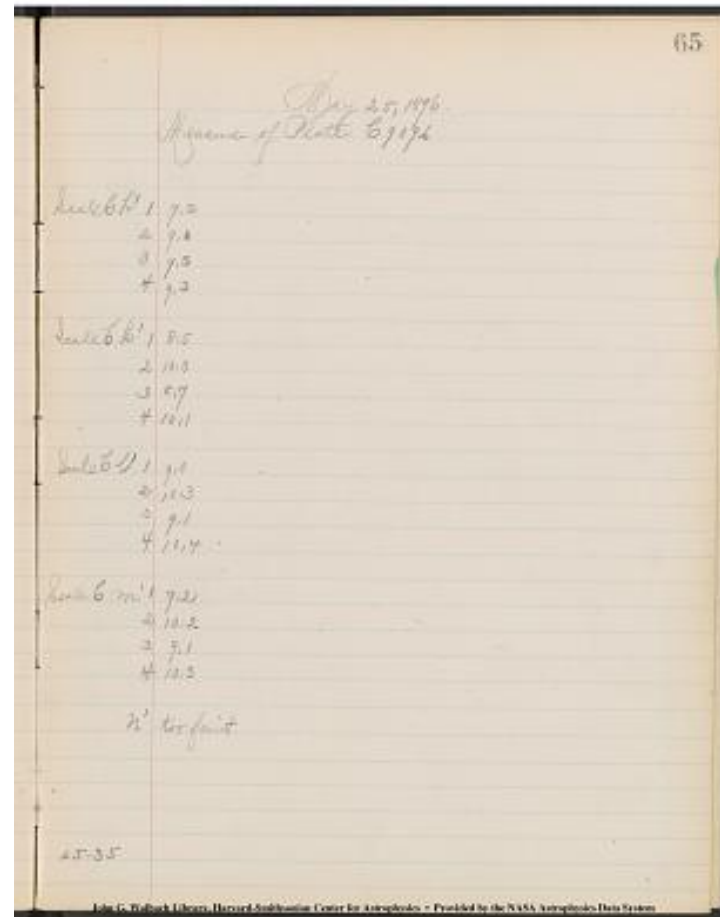 65
May 25, 1896.
Measures of Plate C 9192
Scale C k' 1 9.2
2 9.4
3 9.5
4 9.3
Scale C k' 1 8.5
2 10.0
3 8.7
4 10.1
Scale C l' 1 9.1
2 10.3
3 9.1
4 10.4
Scale C m' 1 9.2
2 10.2
3 9.1
4 10.3
n' too faint
25-35
John G. Wolbach Library, Harvard-Smithsonian Center for Astrophysics • Provided by the NASA Astrophysics Data System